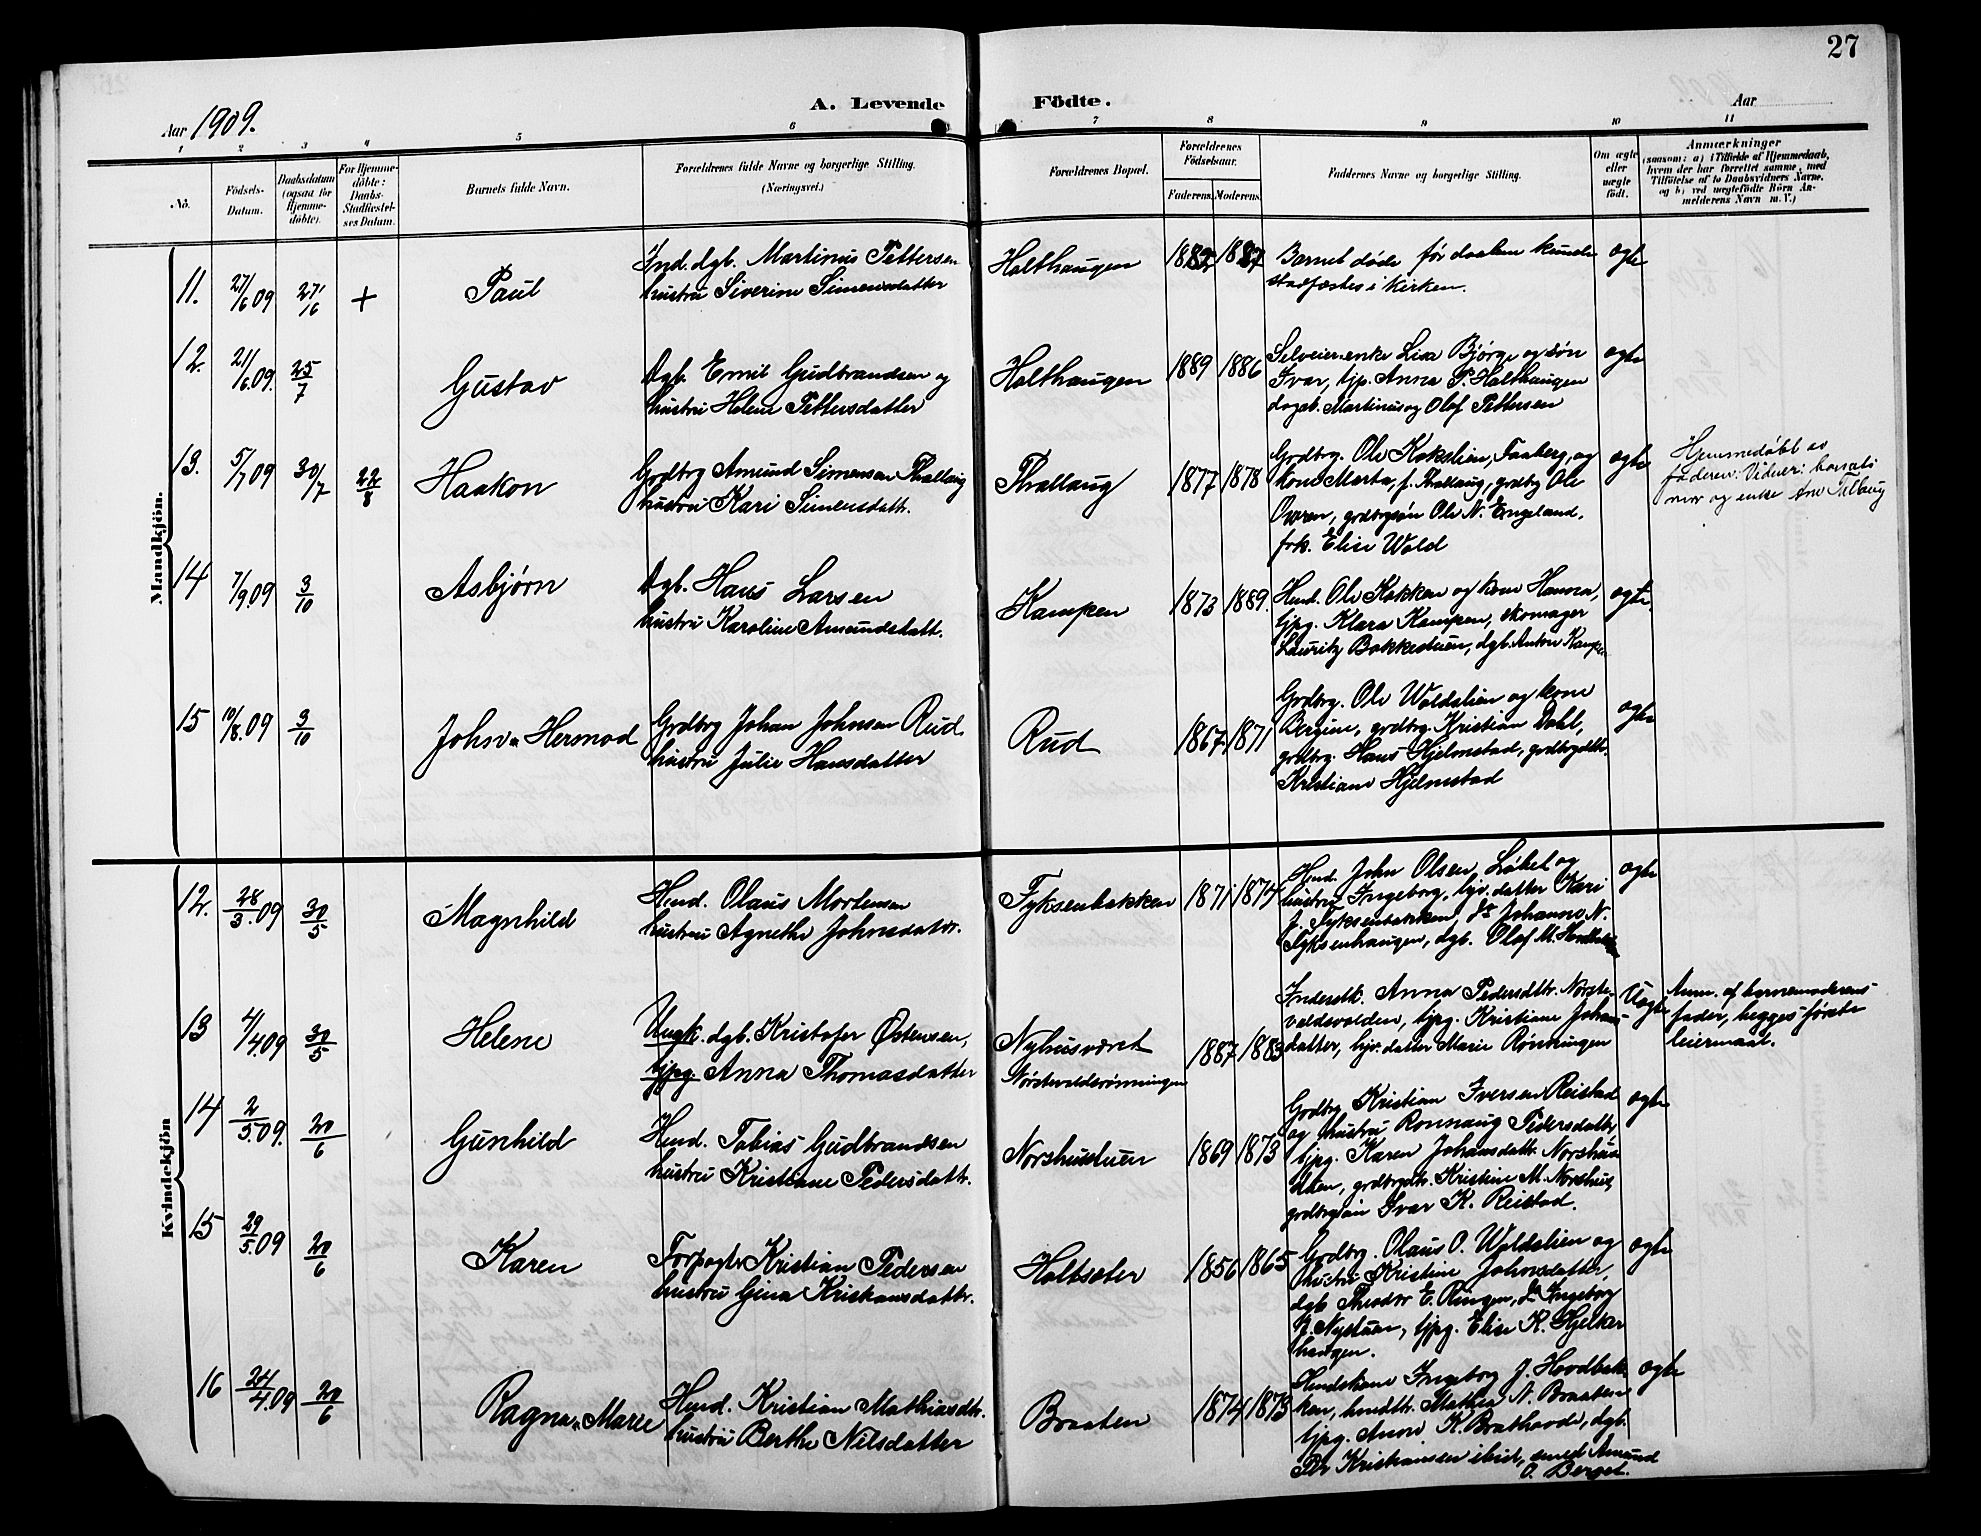 27
Aar 1909.
A. Levende Födte.
Aar
1 2 3 4 5 6 7 8 9 10 11
No.
Födsels-Datum.
Daabsdatum (ogsaa for Hjemmedöbte).
For Hjemmedöbte: Daabs-Stadfæstelses Datum.
Barnets fulde Navn.
Forældrenes fulde Navne og borgerlige Stilling.
(Næringsvei.)
Forældrenes Bopæl.
Forældrenes Födselsaar.
Faderens. Moderens.
Faddernes Navne og borgerlige Stilling.
Om ægte eller uægte födt.
Anmærkninger
(saasom: a) i Tilfælde af Hjemmedaab,
hvem der har forrettet samme, med
Tilföielse af to Daabsvidners Navne.
og b) ved uægtefödte Börn An-
melderens Navn m. V.)
Mandkjön.
11. 27/6 09 27/6 + Paul
Ind. dgb. Martinus Pettersen
hustru Siverine Simensdatter
Holthaugen 1882 1887
Barnet døde før daaben kunde
stadfæstes i kirken.
ægte
12. 21/6 09. 25/7 Gustav
Dgb. Emil Gudbrandsen og
hustru Helene Pettersdatter
Holthaugen 1889 1886
Selveierenke Lisa Bjørge og søn
Ivar, tjp. Anna P. Holthaugen
dagab. Martinus og Olof Pettersen
ægte
13. 5/7 09 30/7 22/8 Haakon
Grdbrg Amund Simensen Thallaug
hustru Kari Simensdatt.
Thallaug 1877 1878
Grdbrg. Ole Kokslien, Faaberg, og
kone Marta, f. Thallaug, grdbrg Ole
Owren, grdbrgsøn Ole N. Engeland,
frk. Elise Wold
ægte
Hjemmedøbt av
faderen. Vidner:
mor og enke Ane
14 7/9 09 3/10 Asbjørn
Dgb. Hans Larsen
hustru Karoline Amundsdatt.
Kampen 1873 1889.
Husd. Ole Kokken og kone Hansa,
tjpg. Klara Kampen, skomager
Lauritz Bakkestuen, dgb. Anton Kampen
ægte
15 10/8 09 3/10 John Hermod
Grdbrg Johan Johnsen Rud
hustru Julie Hansdatter
Rud 1867 1871
Grdbrg. Ole Woldslien og kone
Bergine, grdbrg. Kristian Dahl,
grdbrg. Hans Hjelmstad, grdbrgdtt.
Kristiane Hjelmstad
ægte
Kvindekjön
12. 28/3 09 30/5 Magnhild
Husd. Olaus Mortensen
hustru Agnethe Johnsdatter.
Fyksenbakken 1871 1874
Husd. John Olsen Løket og
hustru Ingeborg, hjv. datter Kari
J. Fyksenbakken, ds Johanne N.
Fyksenhaugen, dgb. Olaf M.
ægte
13 4/4 09 30/5 Helene
Ungk. dgb. Kristofer Østensen,
tjpg Anna Thomasdatter
Nyhusværet
Nørstevoldsrønningen
1887 1883
Inderstk. Anna Pedersdttr. Nørste-
voldsvolden, tjpg. Kristiane Johans-
datter, hjv. datter Marie Rønningen
Uægte
Anm. af barnemoderens
fader, begges første
leiermaal.
14 2/5 09. 20/6 Gunhild
Husd. Tobias Gudbrandsen
hustru Kristiane Pedersdatt.
Norshusstuen 1869 1873
Grdbrg Kristian Iversen Reistad
og hustru Rønnaug Pedersdatter
tjpg. Karen Johansdatt. Norshus-
stuen, grdbrgdtr. Kristine M. Norshus,
grdbrgsøn Ivar K. Reistad.
ægte
15 29/5 09 20/6 Karen
Forpagter Kristian Pedersen
hustru Gina Kristiansdattr.
Holtsæter 1856 1865
Grdbrg. Olaus O. Woldslien og
hustru Kristine Johnsdatter,
dgb Theodor E. Ringen, ds Ingeborg
N. Nystuen, tjpg. Elise K. Gjelker
haugen.
ægte
16 24/4 09 20/6 Ragna Marie
Husd. Kristian Mathias
hustru Berthe Nilsdatter
Braaten 1874 1873
Husdskone Ingeborg J. Hovdbak-
ken, husdtt. Mathea N. Braaten
tjpg. Anne K. dgb.
Per Kristiansen ibid, smed Amund
O. Berget.
ægte